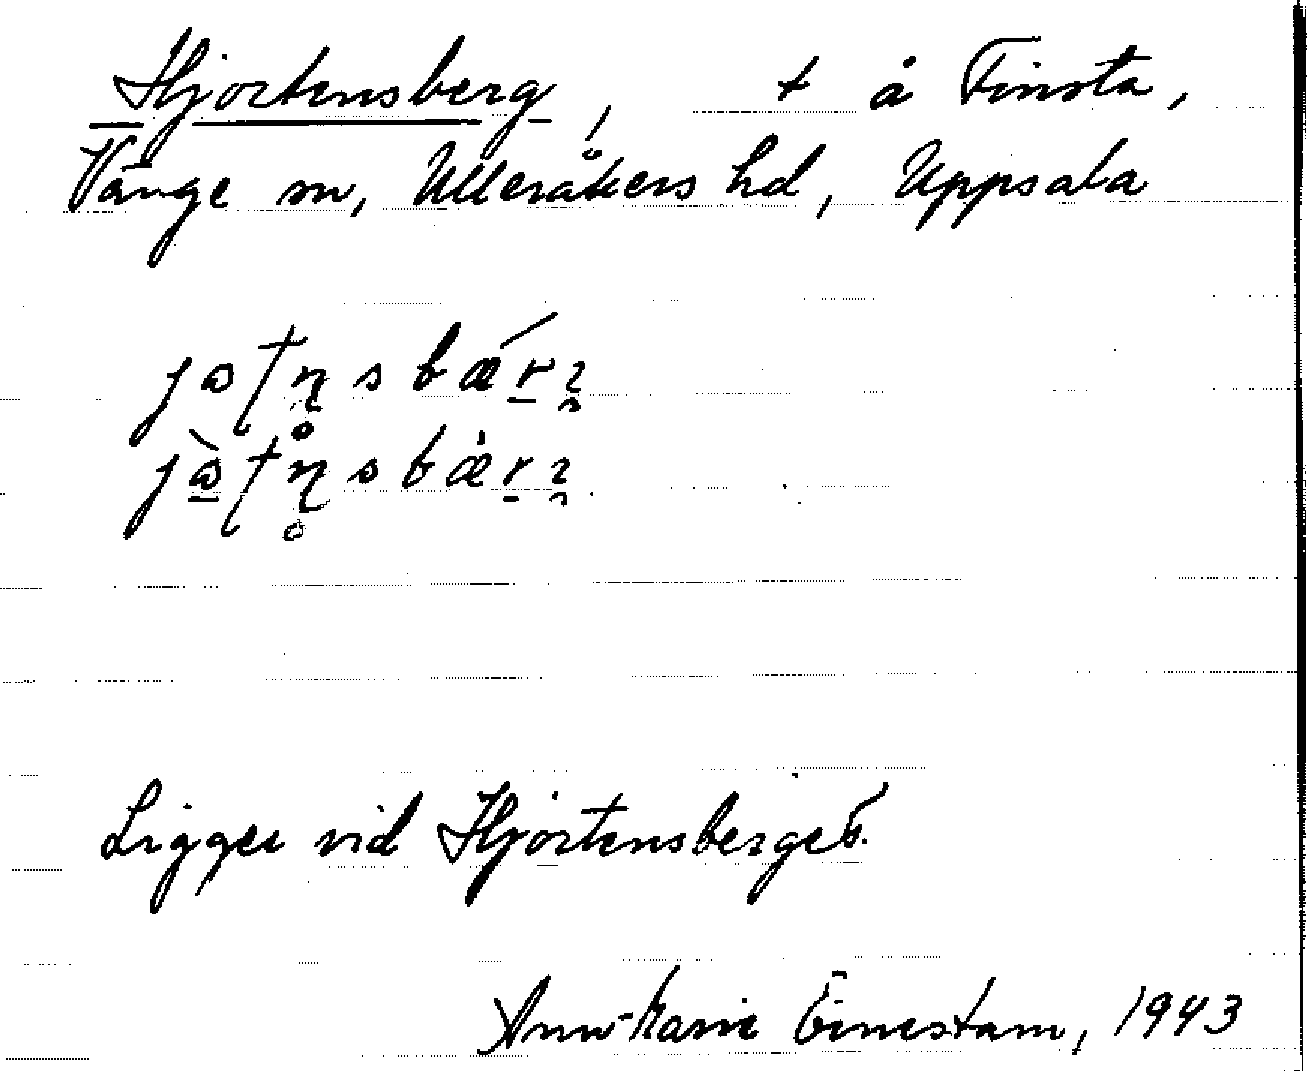 Hjortensberg, t å Finsta,
Vänge sn, Ulleråkers hd, Uppsala
Ligger vid Hjortensberget.
Ann-Marie Einestam, 1943